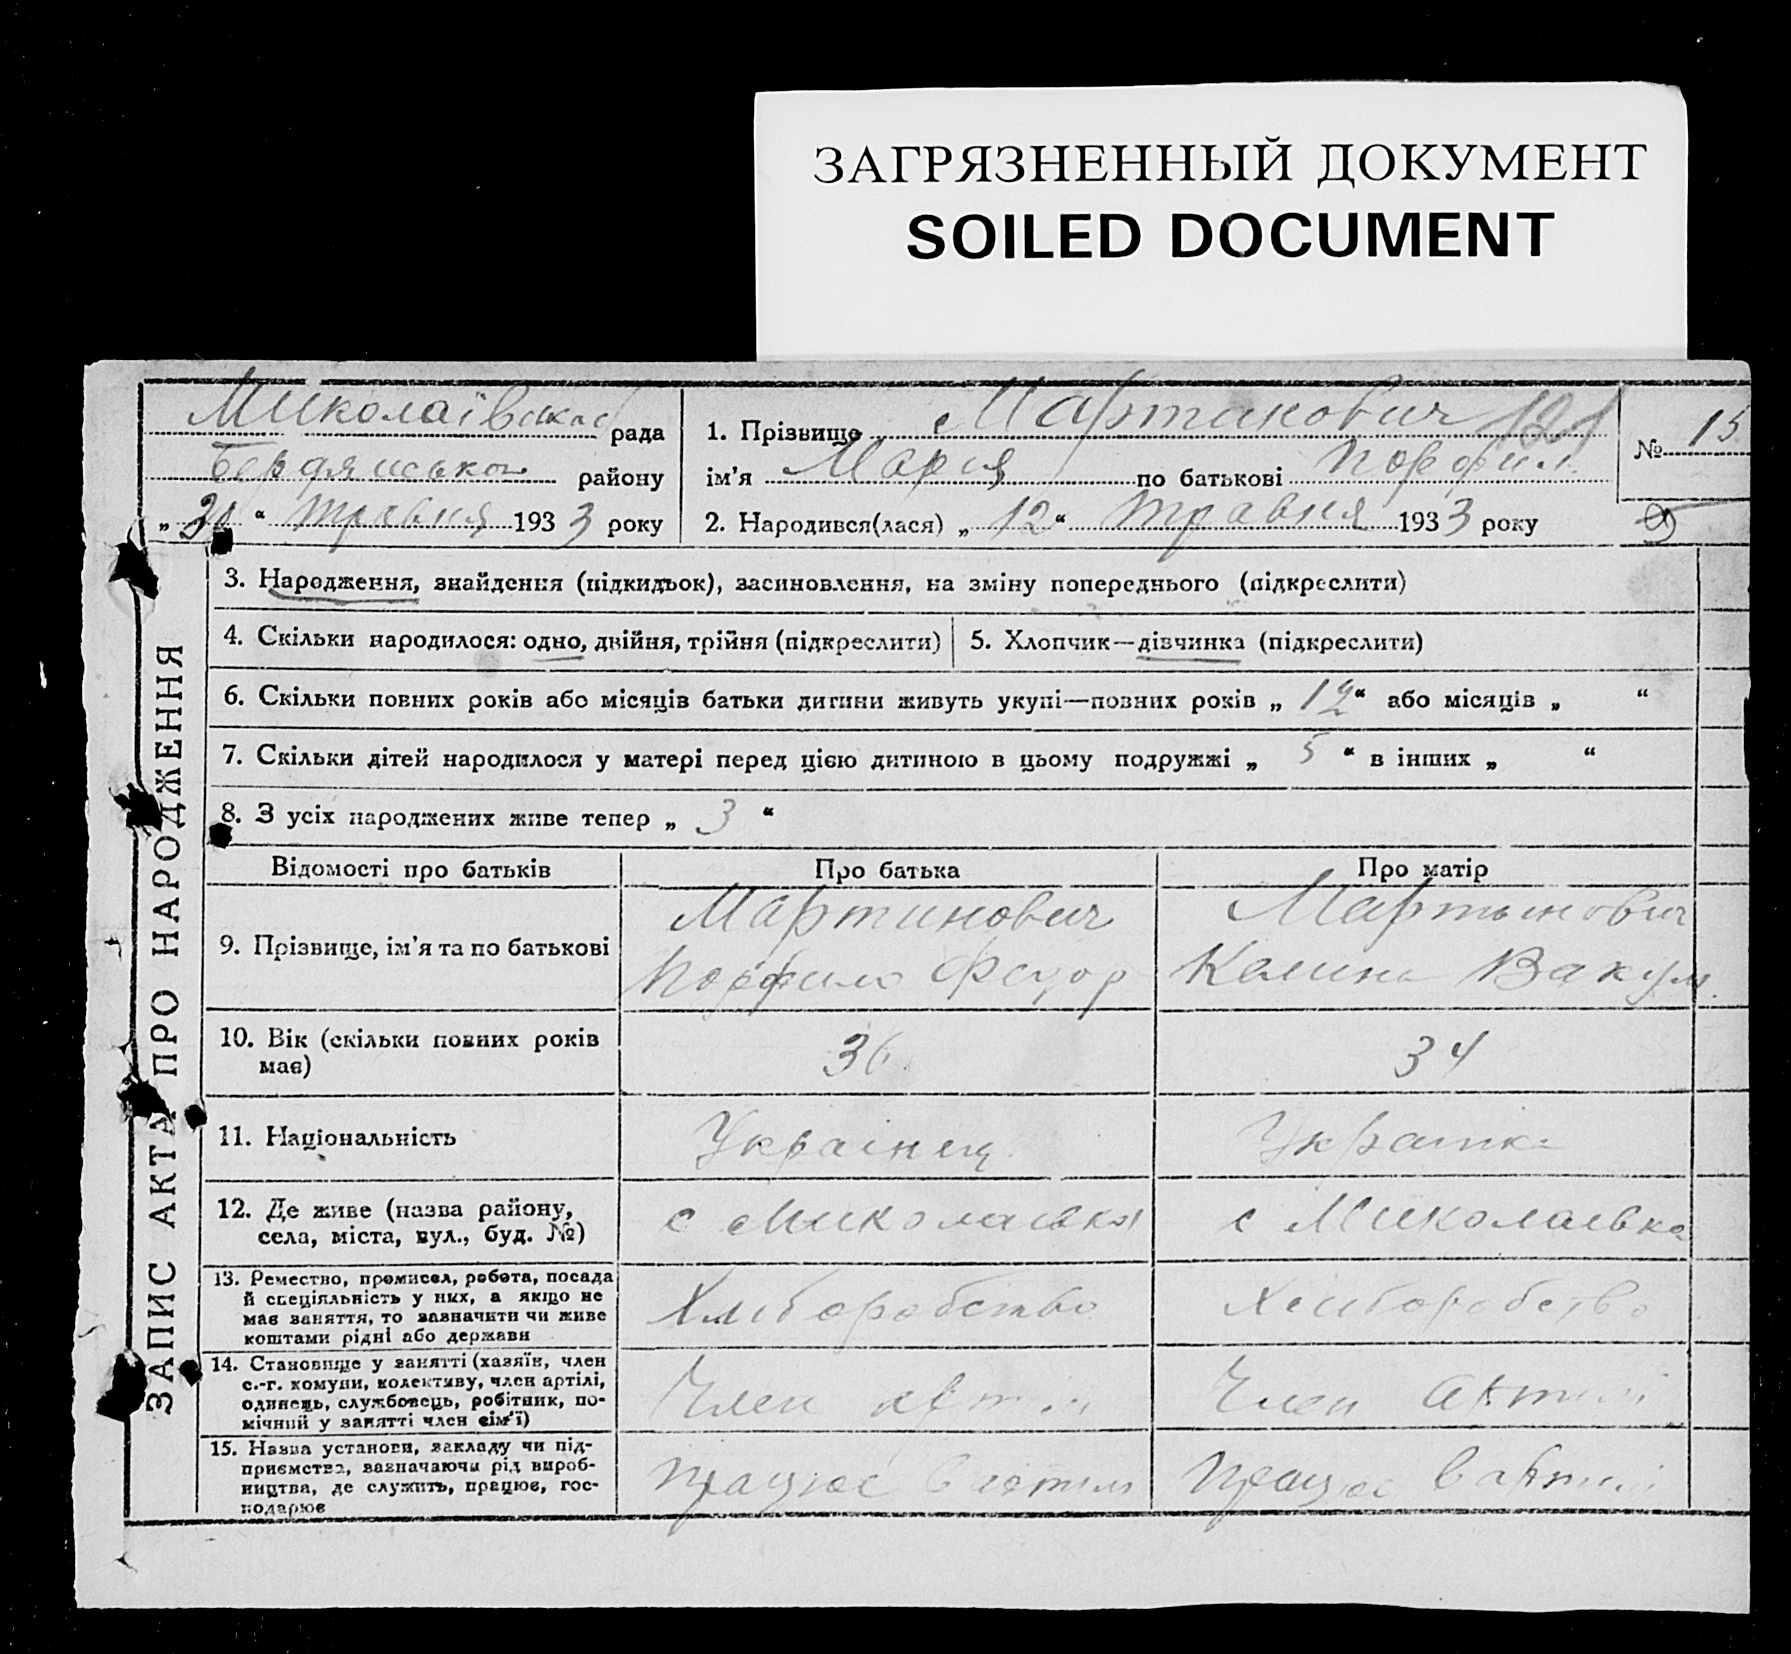 ЗАГРЯЗНЕННЫЙ ДОКУМЕНТ
SOILED DOCUMENT
Миколаівська рада
Бердянського району
„ 30 “ травня 1933 року
1. Прізвище Мартинович 121
ім’я Марія по батькові Порфил.
2. Народився(лася) „ 12 “ травня 1933 року
№ 15
ЗАПИС АКТА ПРО НАРОДЖЕННЯ
3. Народження, знайдення (підкидьок), засиновлення, на зміну попереднього (підкреслити)
4. Скільки народилося: одно, двійня, трійня (підкреслити)
5. Хлопчик—дівчинка (підкреслити)
6. Скільки повних років або місяців батьки дитини живуть укупі—повних років „ 12 “ або місяців „ “
7. Скільки дітей народилося у матері перед цією дитиною в цьому подружжі „ 5 “ в інших „ “
8. З усіх народжених живе тепер „ 3 “
Відомості про батьків
Про батька
Про матір
9. Прізвище, ім’я та по батькові
Мартинович
Порфило Федор
Мартынович
Калина Вакум.
10. Вік (скільки повних років
має)
36
34
11. Національність
Украінец
Украінка
12. Де живе (назва району,
села, міста, вул., буд. №)
с Миколаівка
с Миколаівка
13. Ремество, промисел, робота, посада
й спеціяльність у них, а якщо не
має заняття, то зазначити чи живе
коштами рідні або держави
Хліборобство
Хліборобство
14. Становище у занятті (хазяїн, член
с.-г. комуни, колективу, член артілі,
одинець, службовець, робітник, по-
мічний у занятті член сім’ї)
Член артілі
Член артілі
15. Назва установи, закладу чи під-
приємства, зазначаючи рід вироб-
ництва, де служить, працює, гос-
подарює
працює в артілі
працює в артілі